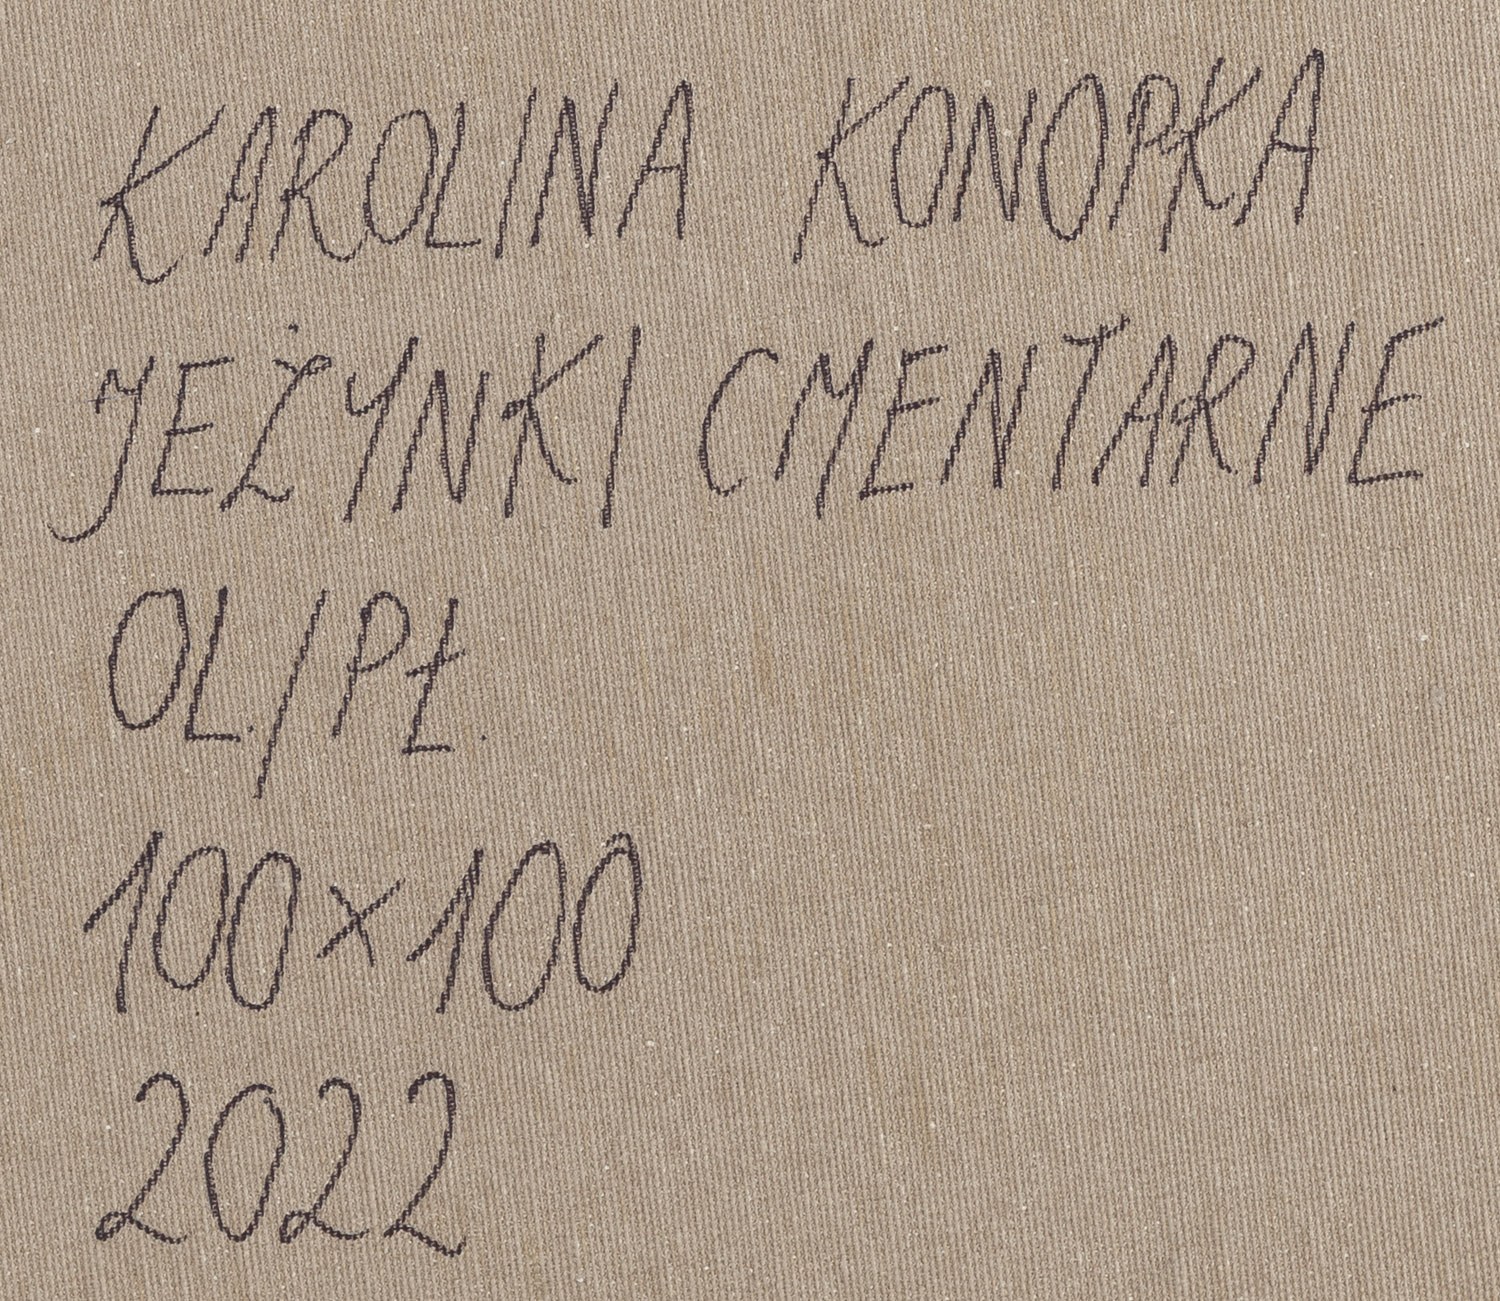 KAROLINA KONOPKA
JEŻYNKI CMENTARNE
OL./PŁ.
100×100
2022